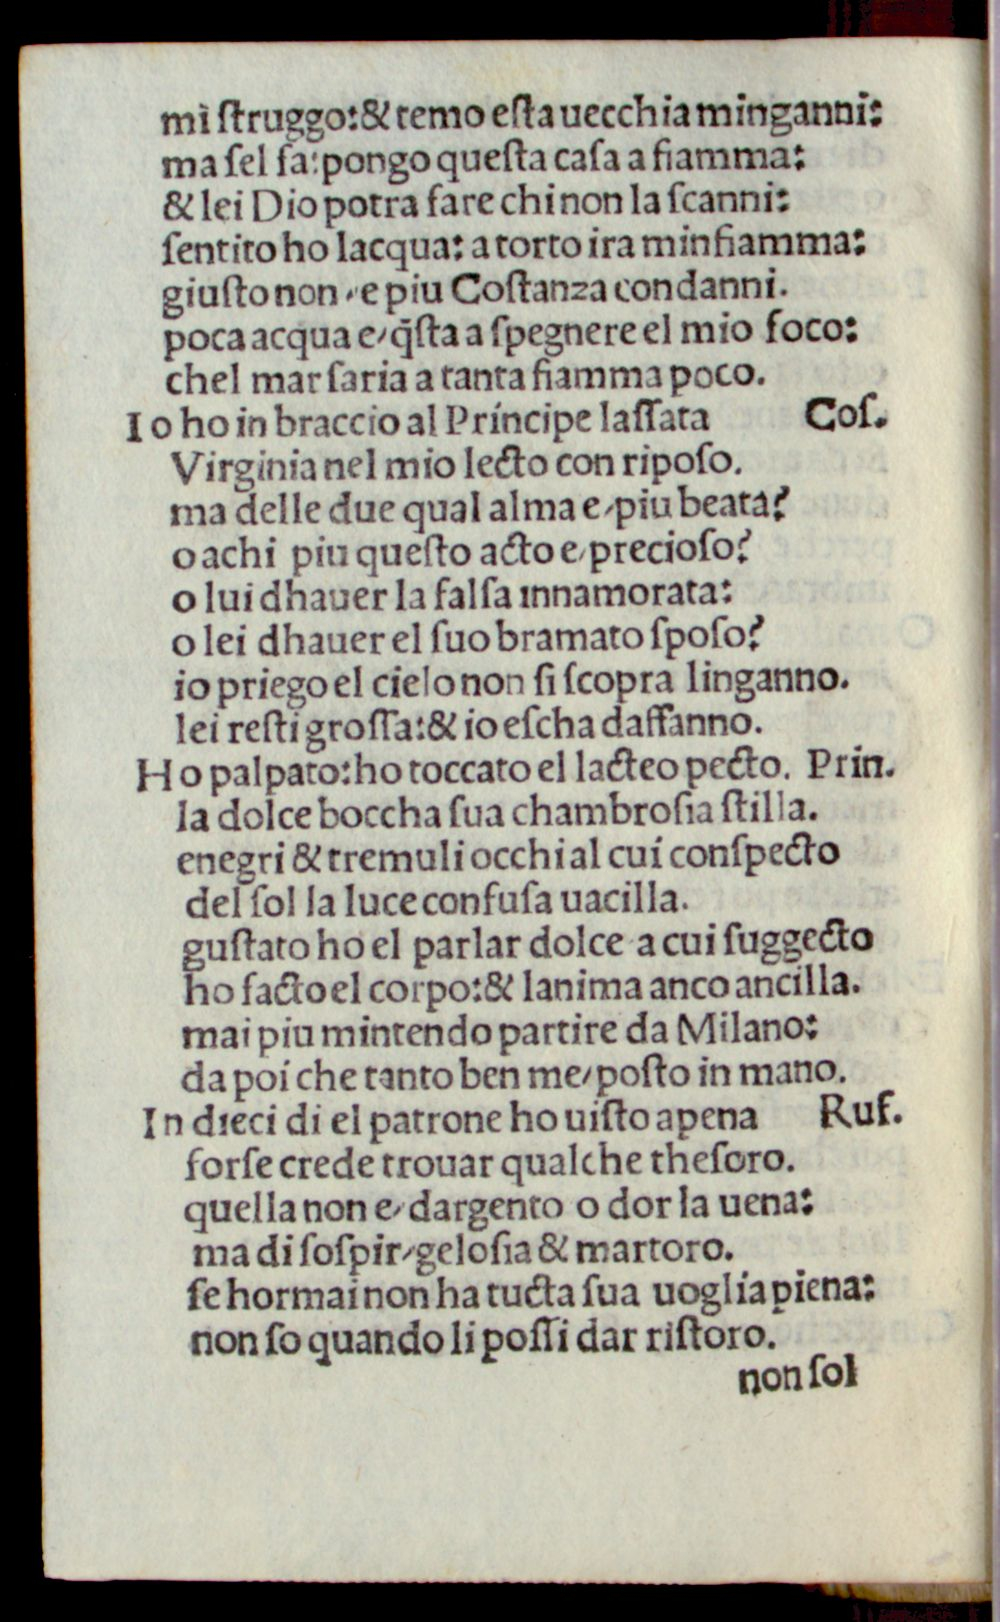 mi ſtruggo:& temo eſta uecchia minganni:
ma ſel fa: pongo queſta caſa a fiamma:
& lei Dio potra fare chi non la ſcanni:
ſentito ho lacqua: a torto ira minfiamma:
giuſto non e piu Coſtanza condanni.
poca acqua e/ q̃ſta a ſpegnere el mio foco:
chel mar ſaria a tanta fiamma poco.
Io ho in braccio al Príncipe laſſata Coſ.
Virginia nel mio lecto con ripoſo.
ma delle due qual alma e/ piu beata?
o achi piu queſto acto e/ precioſo?
o lui dhauer la falſa innamorata:
o lei dhauer el ſuo bramato ſpoſo?
io priego el cielo non ſi ſcopra linganno.
lei reſti groſſa:& io eſcha daffanno.
Ho palpato: ho toccato el lacteo pecto. Prin.
la dolce boccha ſua chambroſia ſtilla.
enegri & tremuli occhi al cuí conſpecto
del ſol la luce confuſa uacilla.
guſtato ho el parlar dolce a cui ſuggecto
ho facto el corpo:& lanima anco ancilla.
mai piu mintendo partire da Milano:
da poi che tanto ben me/ poſto in mano.
In dieci di el patrone ho uiſto apena Ruf.
forſe crede trouar qualche theſoro.
quella non e/ dargento o dor la uena:
ma di ſoſpir/ geloſia & martoro.
ſe hormai non ha tucta ſua uoglia piena:
non ſo quando li poſſi dar riſtoro.
non ſol